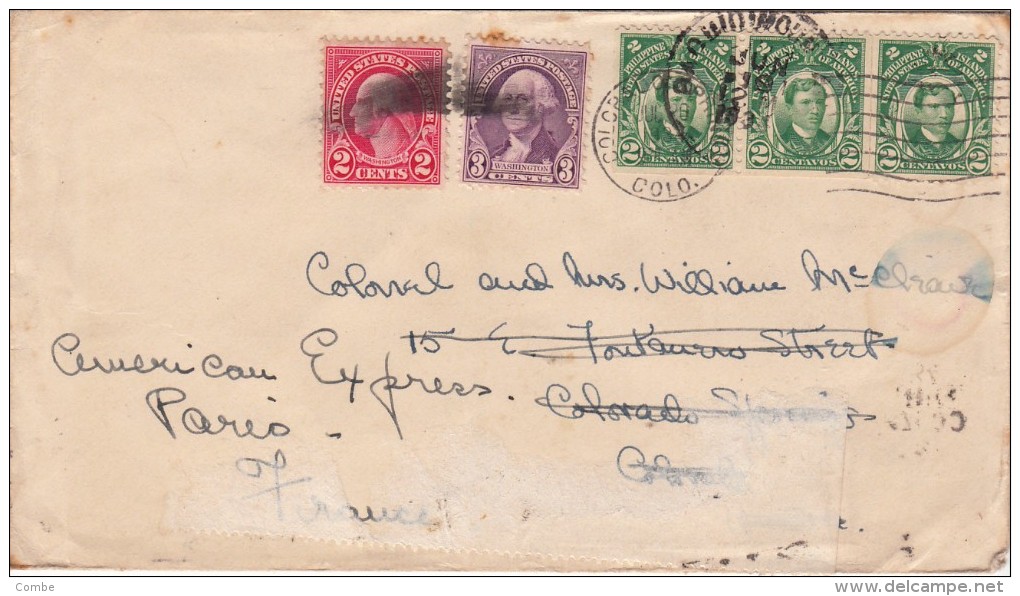 UNITED STATES POSTAGE
WASHINGTON
2 CENTS 2
UNITED STATES POSTAGE
3 WASHINGTON 3
CENTS
2 PHILIPPINE ISLANDS 2
UNITED STATES OF AMERICA
2 CENTAVOS 2
2 PHILIPPINE ISLANDS 2
UNITED STATES OF AMERICA
2 CENTAVOS 2
2 PHILIPPINE ISLANDS 2
UNITED STATES OF AMERICA
2 CENTAVOS 2
COLO.
Colonel and Mrs. William Mc
15 E Street
Colorado Springs
American Express.
Paris -
France
Combe
www.delcampe.net